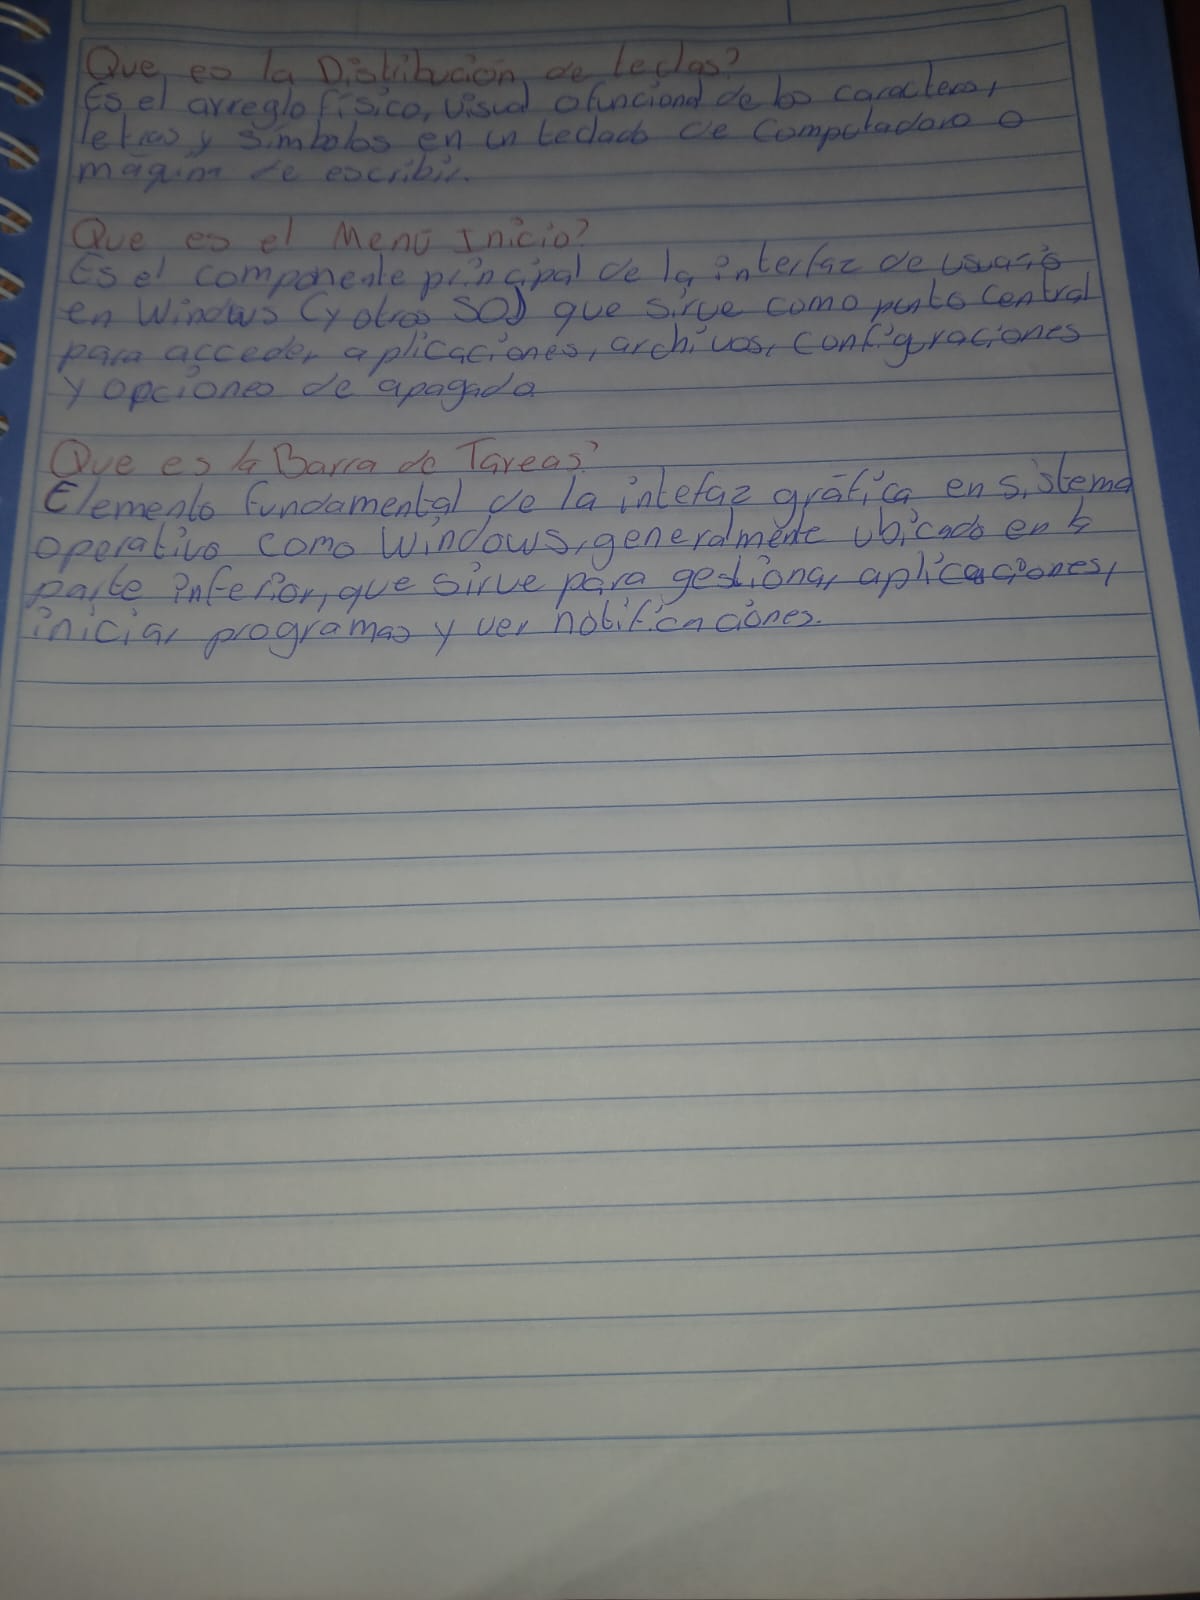 Que es la Distribución de teclas?
Es el arreglo físico, visual o funcional de los caracteres,
letras y símbolos en un teclado de computadora o
máquina de escribir.
Que es el Menú Inicio?
Es el componente principal de la interfaz de usuario
en Windows (y otros SO) que sirve como punto central
para acceder aplicaciones, archivos, configuraciones
y opciones de apagado
Que es la Barra de Tareas?
Elemento fundamental de la intefaz gráfica en sistema
operativo como Windows, generalmente ubicado en la
parte inferior, que sirve para gestionar aplicaciones,
iniciar programas y ver notificaciones.